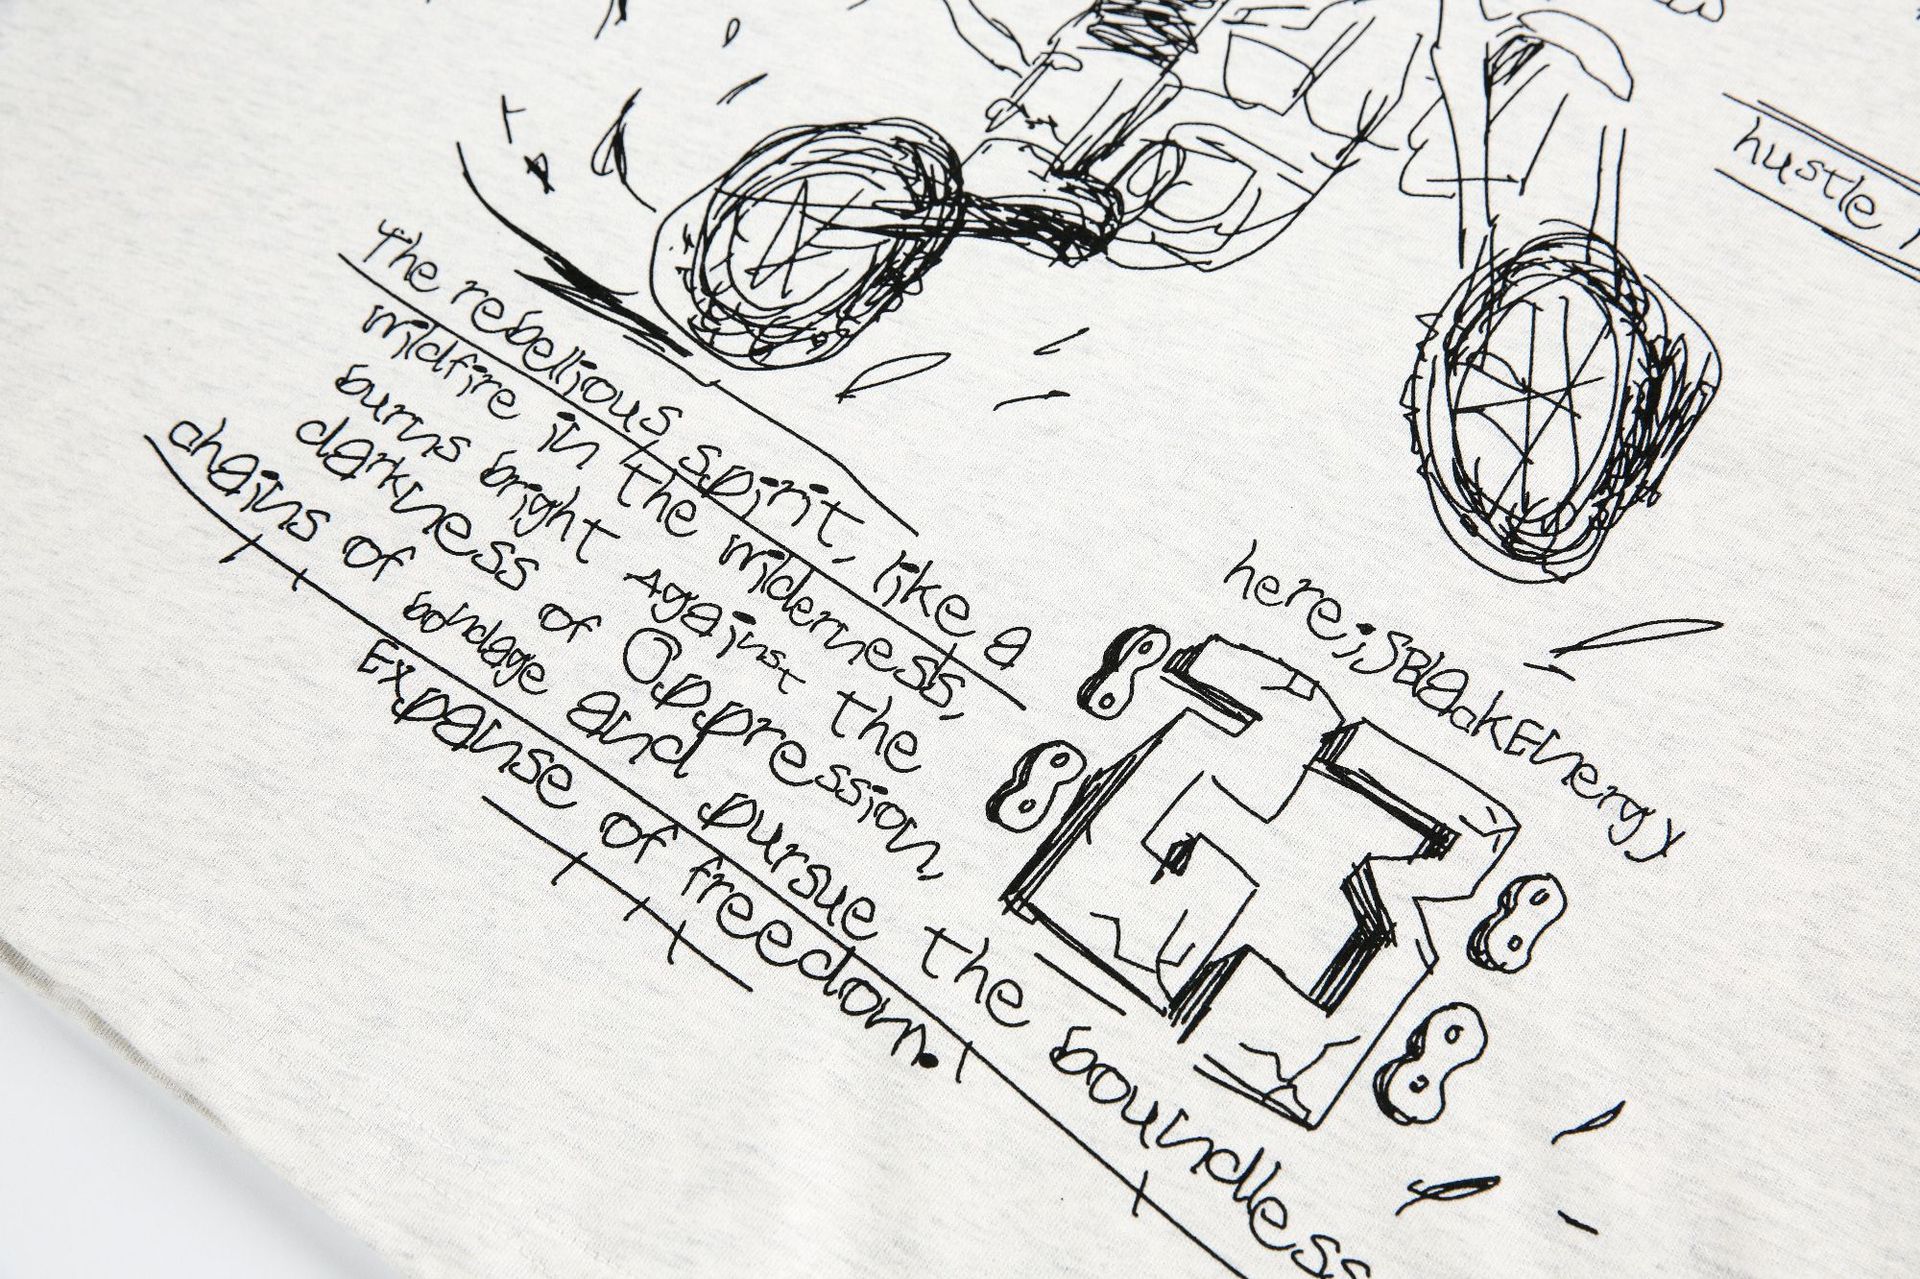 hustle
The rebellious spirit, like a
wildfire in the wilderness,
burns bright Against the
darkness of Oppression,
chains of bondage and pursue the boundless
Expanse of freedom.
here;SBlackEnergy